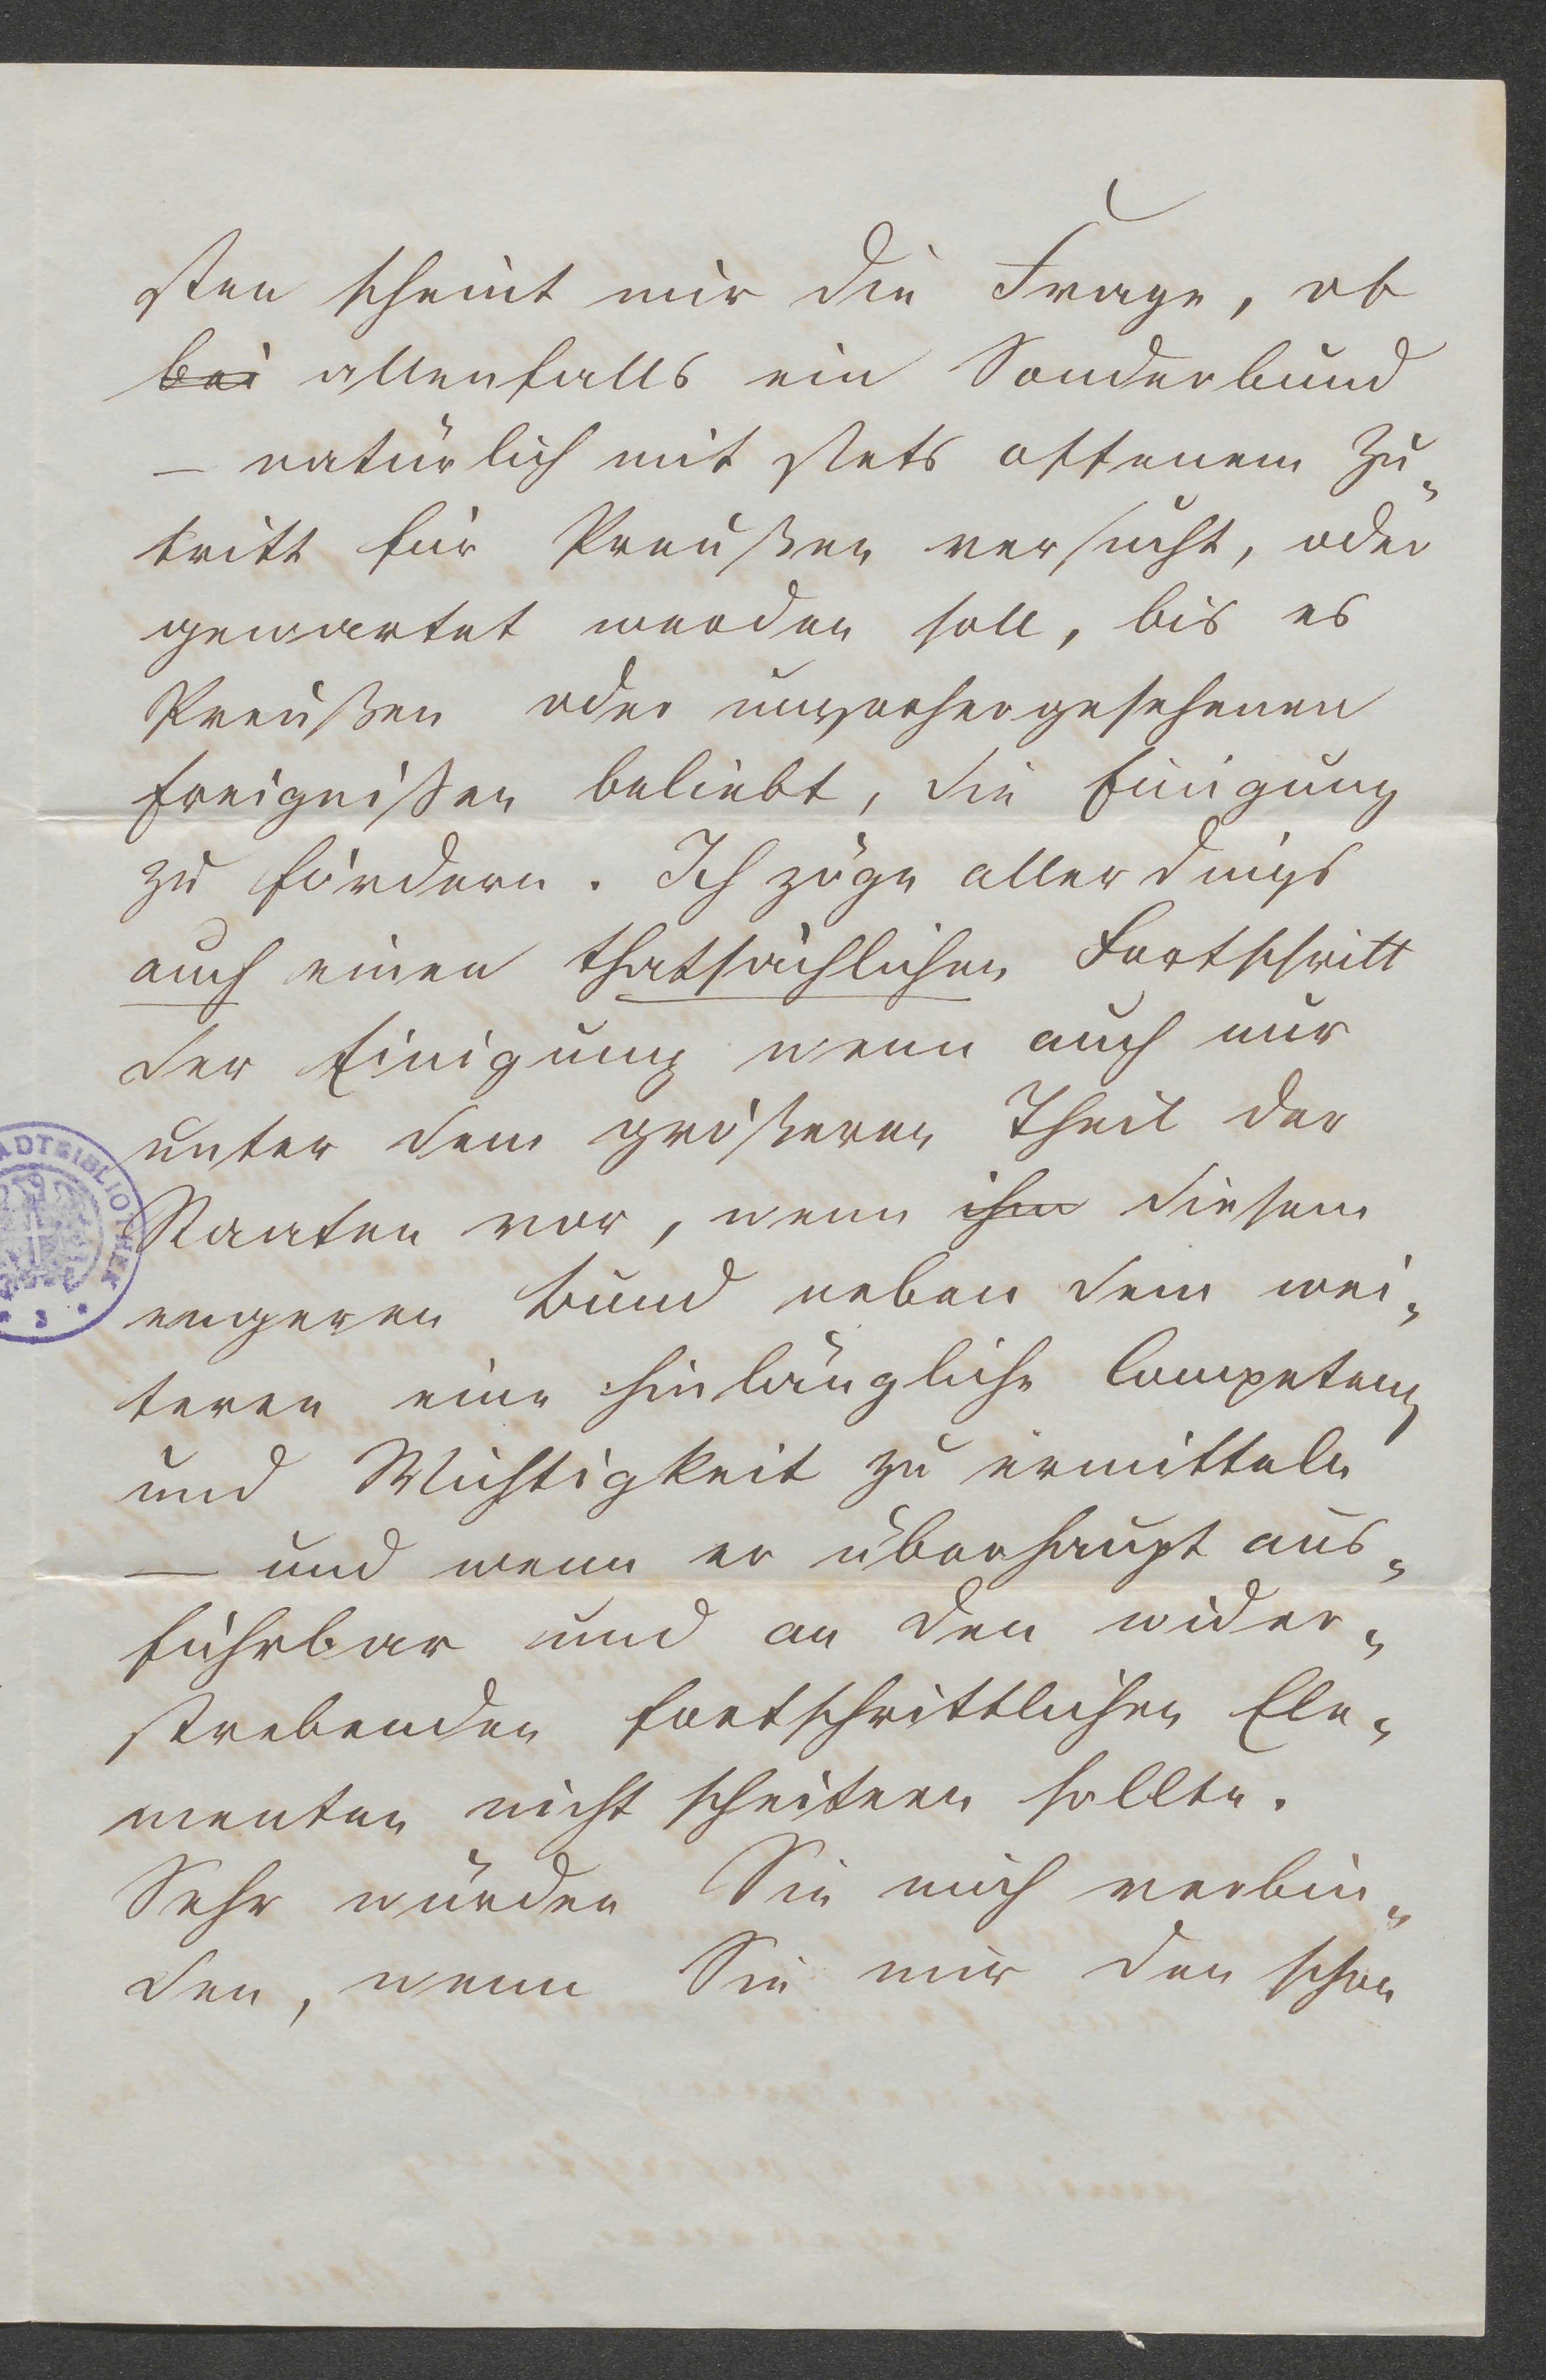 sten scheint mir die Frage, ob
bei allenfalls ein Sonderbund
— natürlich mit stets offenem Zu-
tritt für Preußen versucht, oder
gewartet werden soll, bis es
Preußen oder unvorhergesehenen
Ereignißen beliebt, die Einigung
zu fördern. Ich zöge allerdings
auch einen thatsächlichen Fortschritt
der Einigung wenn auch nur
unter dem größeren Theil der
Staaten vor, wenn ihm diesem
engeren Bund neben dem wei-
teren eine hinlängliche Competenz
und Wichtigkeit zu ermitteln
— und wenn er überhaupt aus-
führbar und an den wider-
strebenden fortschrittlichen Ele-
menten nicht scheitern sollte.
Sehr würden Sie mich verbin-
den, wenn Sie mir den schon
ADTBIBLIOTHEK